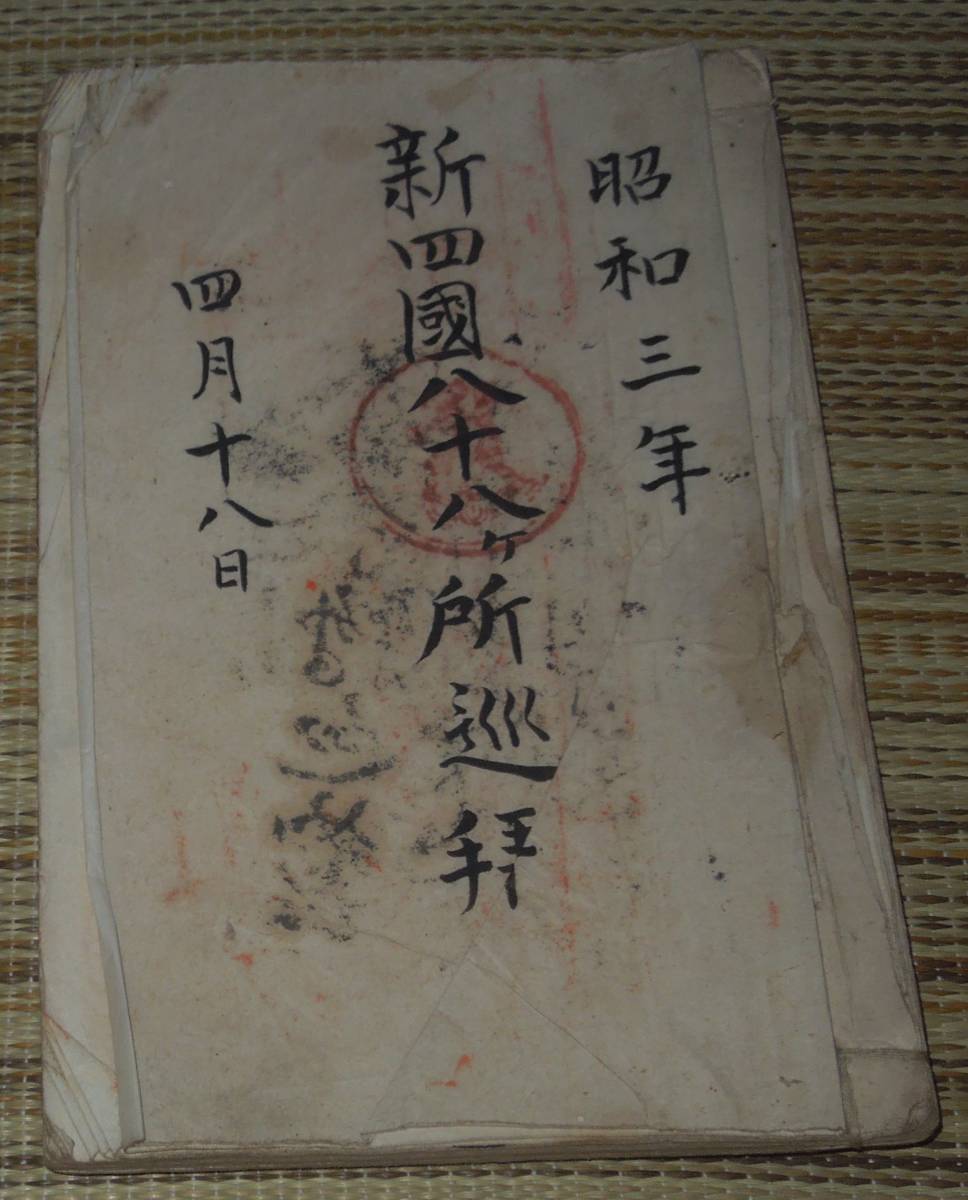 昭和三年
新四國八十八ヶ所巡拜
四月十八日